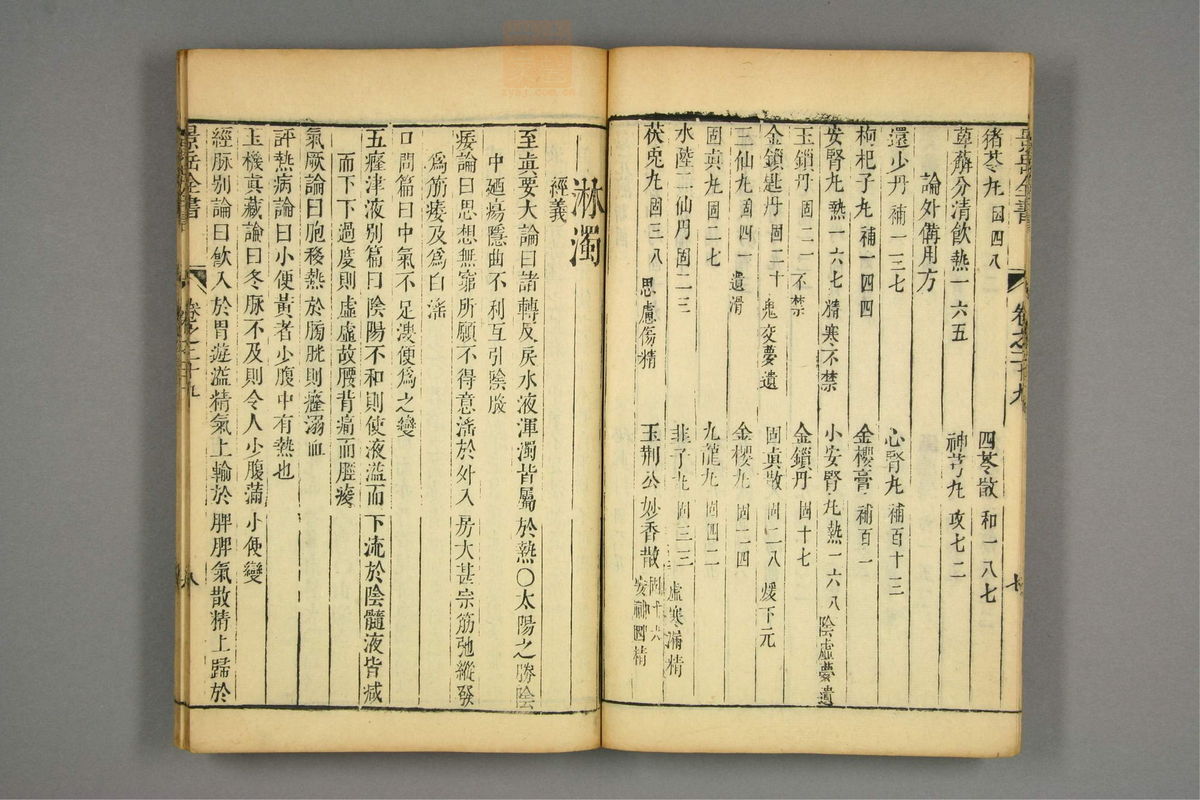 景岳全書
卷之二十九
猪苓丸 固四八
四苓散 和一八七
萆薢分清飲 熱一六五
神芎丸 攻七二
論外備用方
還少丹 補一三七
心腎丸 補百十三
枸杞子丸 補一四四
金櫻膏 補百一
安腎丸 熱一六七 精寒不禁
小安腎丸 熱一六八 陰虛夢遺
玉鎖丹 固二一 不禁
金鎖丹 固十七
金鎖匙丹 固二十 鬼交夢遺
固真散 固二八 煖下元
三仙丸 固四一 遺滑
金櫻丸 固二四
固真丸 固二七
九龍丸 固四二
水陸二仙丹 固二三
韭子丸 固三三 虛寒漏精
茯兎丸 固三八 思慮傷精
王荆公妙香散 固十六 安神固精
淋濁
經義
至真要大論曰諸轉反戾水液渾濁皆屬於熱○太陽之勝陰
中廼瘍隱曲不利互引陰股
痿論曰思想無窮所願不得意滛於外入房大甚宗筋弛縱發
爲筋痿及爲白滛
口問篇曰中氣不足溲便爲之變
五癃津液别篇曰陰陽不和則使液溢而下流於陰髓液皆减
而下下過度則虛虛故腰背痛而脛痠
氣厥論曰胞移熱於膀胱則癃溺血
評熱病論曰小便黃者少腹中有熱也
玉機真藏論曰冬脉不及則令人少腹滿小便變
經脉别論曰飲入於胃遊溢精氣上輸於脾脾氣散精上歸於
景岳全書
卷之二十九
八